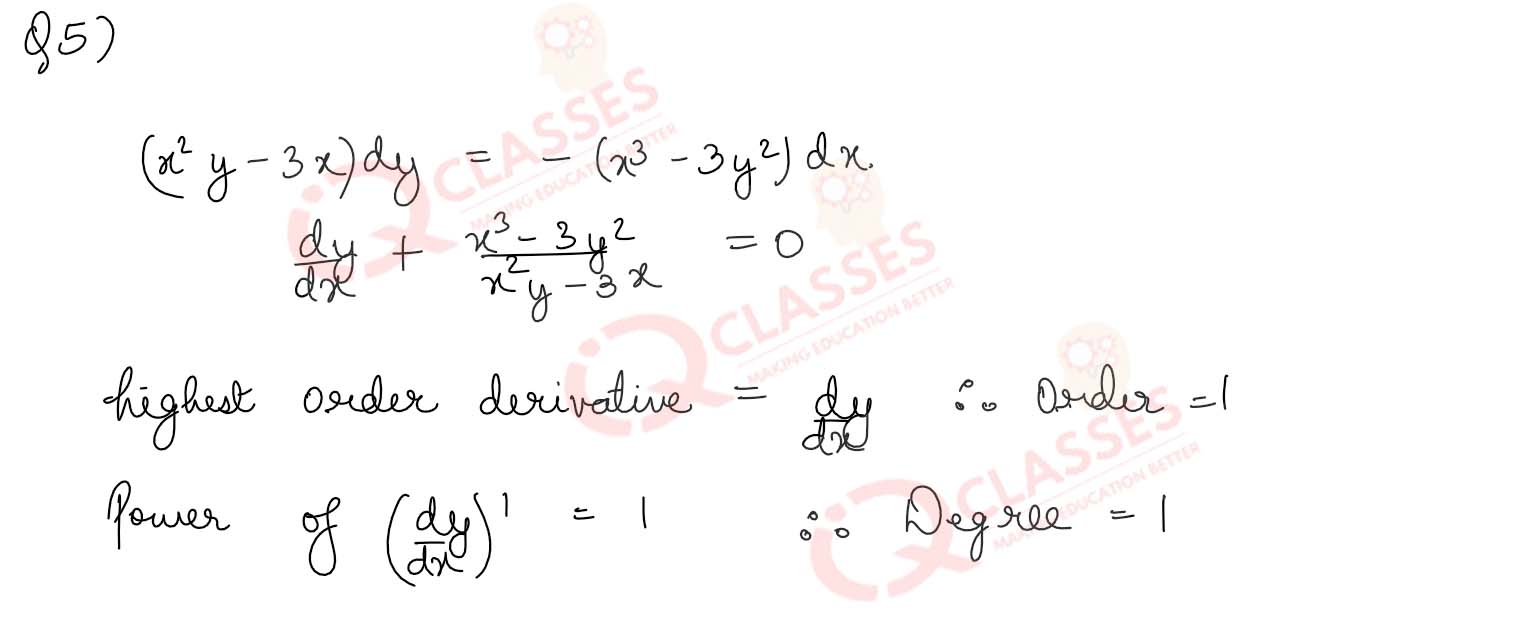 Q5)
(x² y - 3x) dy = - (x³ - 3y²) dx.
dy/dx + (x³ - 3y²)/(x²y - 3x) = 0
highest order derivative = dy/dx ∴ Order = 1
Power of (dy/dx)¹ = 1 ∴ Degree = 1
iQ CLASSES
MAKING EDUCATION BETTER
iQ CLASSES
MAKING EDUCATION BETTER
iQ CLASSES
MAKING EDUCATION BETTER